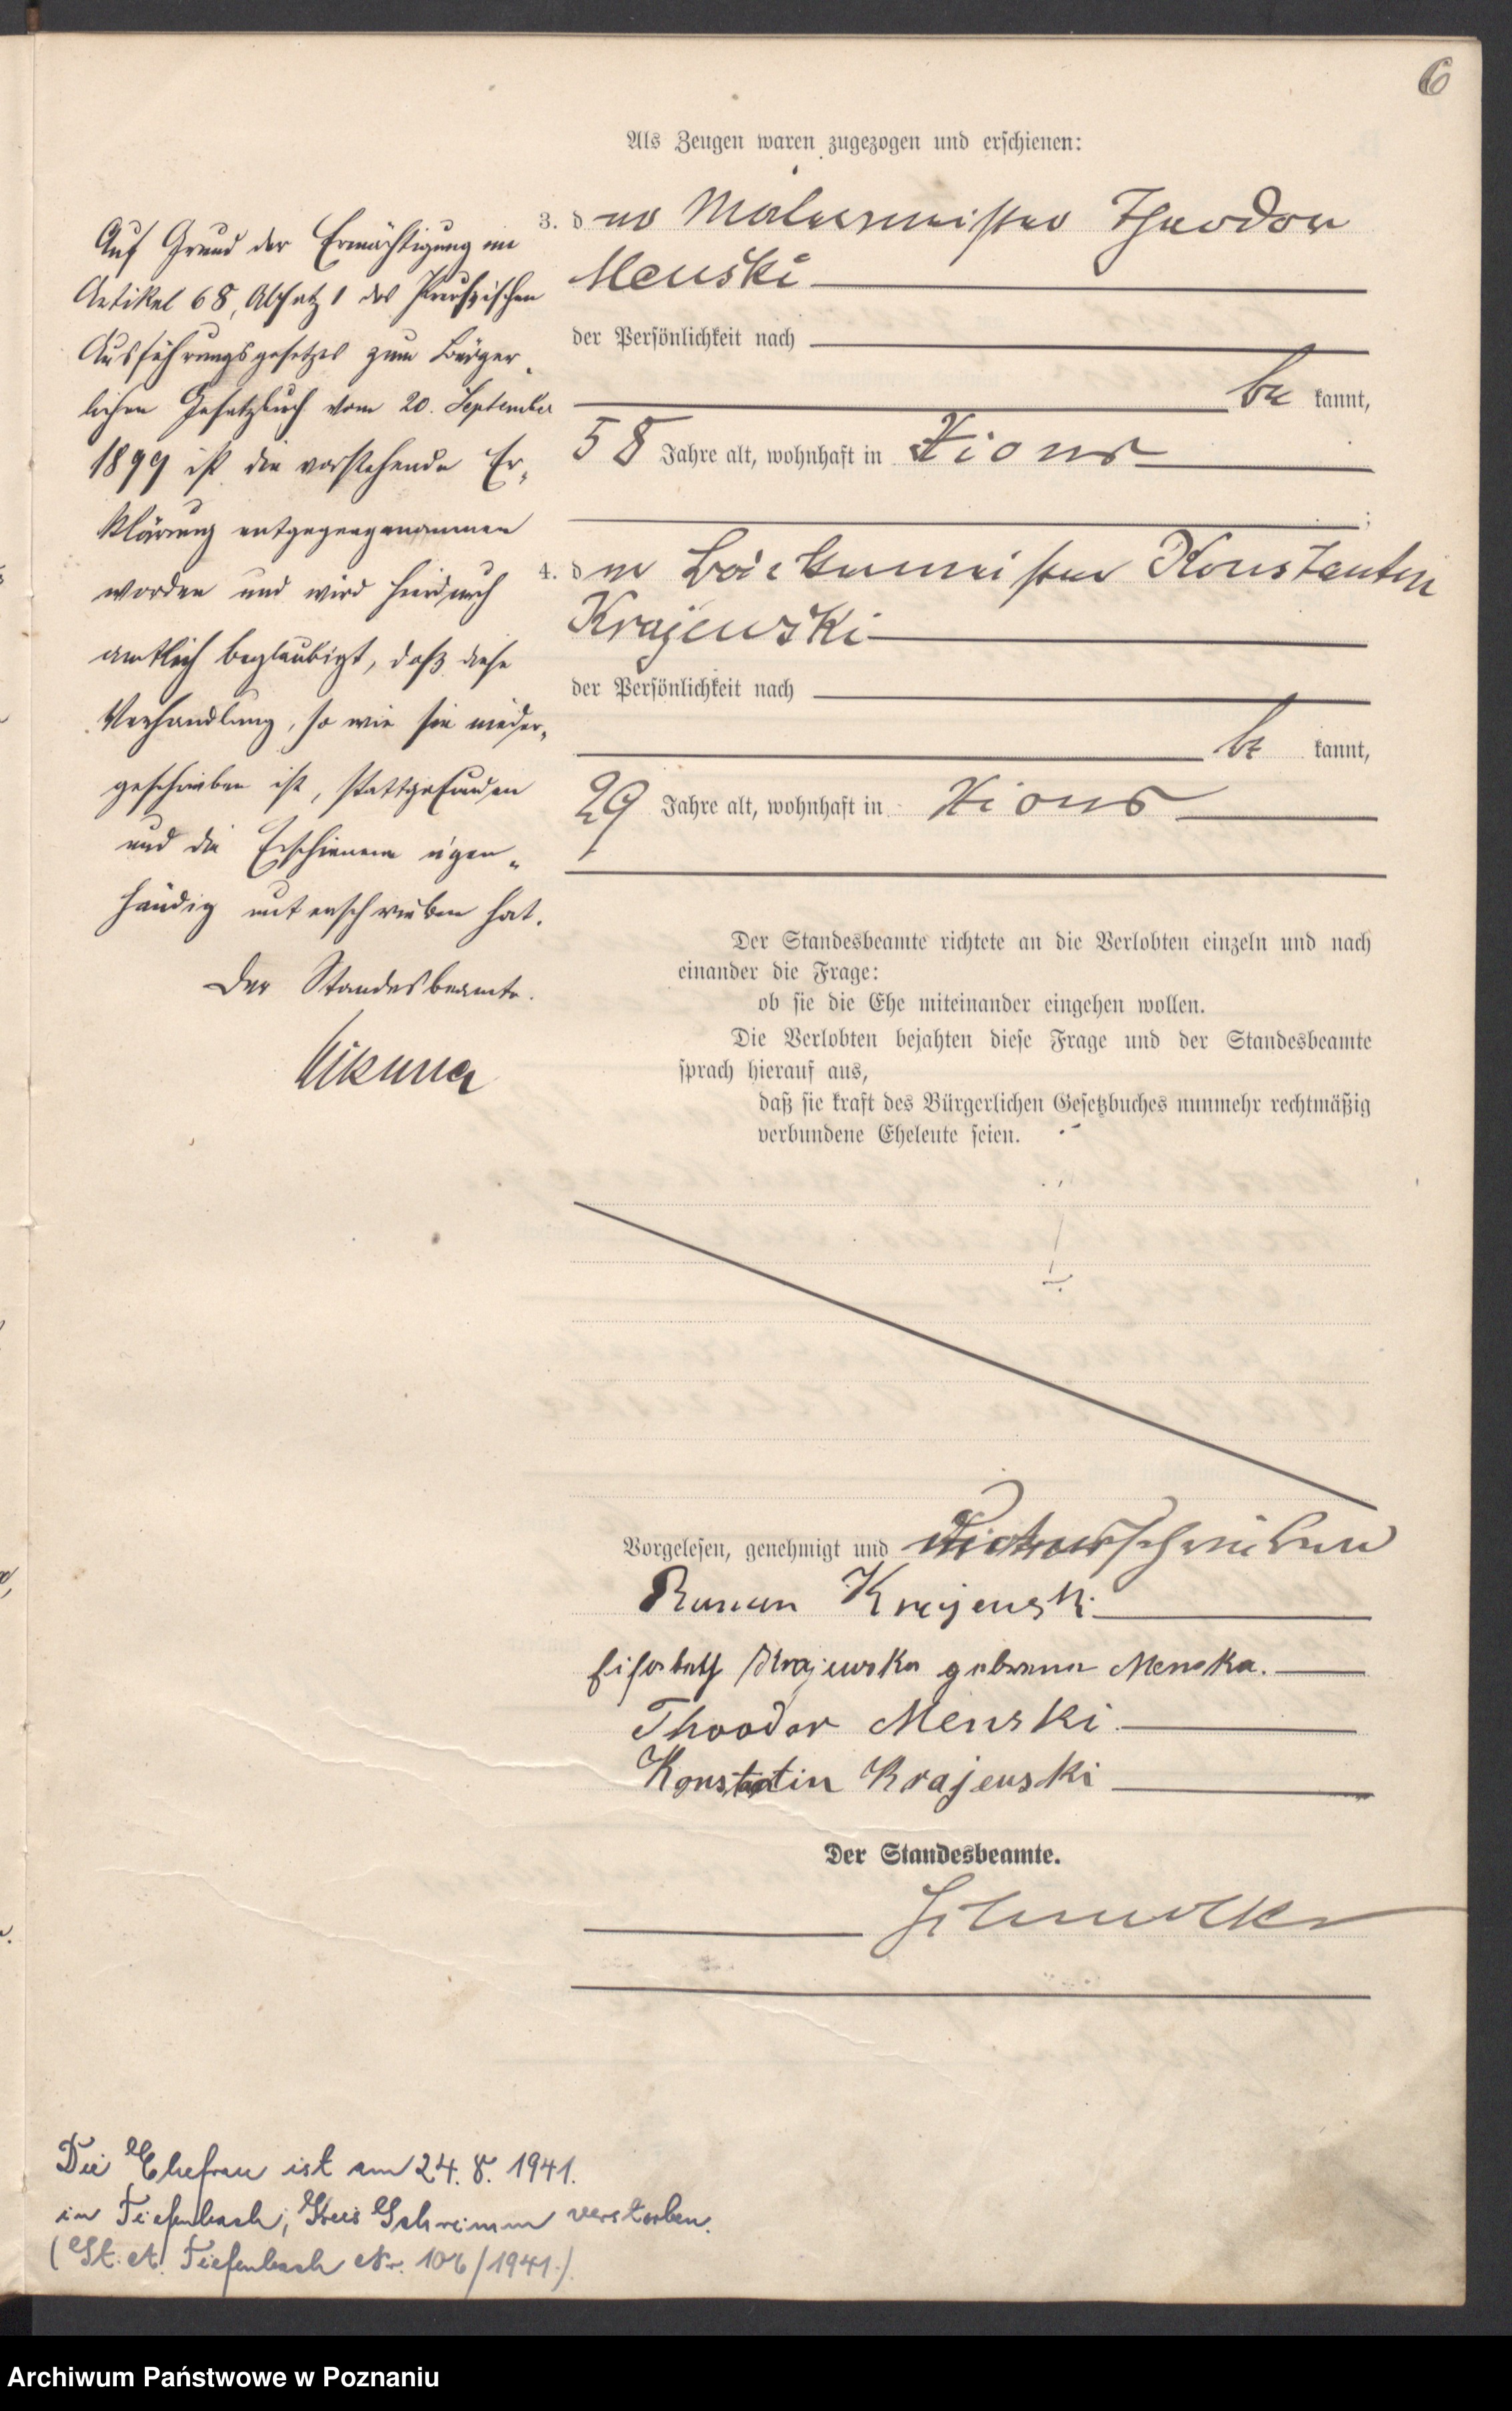 6
Als Zeugen waren zugezogen und erschienen:
3. der Malermeister Theodor
Menski
der Persönlichkeit nach
be kannt,
58 Jahre alt, wohnhaft in Xions
;
4. der Bäckermeister Konstantin
Krajewski
der Persönlichkeit nach
be kannt,
29 Jahre alt, wohnhaft in Xions
Der Standesbeamte richtete an die Verlobten einzeln und nach
einander die Frage:
ob sie die Ehe miteinander eingehen wollen.
Die Verlobten bejahten diese Frage und der Standesbeamte
sprach hierauf aus,
daß sie kraft des Bürgerlichen Gesetzbuches nunmehr rechtmäßig
verbundene Eheleute seien.
Vorgelesen, genehmigt und unterschrieben
Roman Krajewski
Elisabeth Krajewska geborene Menska.
Theodor Menski
Konstantin Krajewski
Der Standesbeamte.
Auf Grund der Ermächtigung im
Artikel 68, Absatz 1 des Preußischen
Ausführungsgesetzes zum Bürger-
lichen Gesetzbuch vom 20. September
1899 ist die vorstehende Er-
klärung entgegengenommen
worden und wird hierdurch
amtlich beglaubigt, daß diese
Verhandlung, so wie sie nieder-
geschrieben ist, stattgefunden
und die Erschienene eigen-
händig unterschrieben hat.
Der Standesbeamte.
Die Ehefrau ist am 24. 8. 1941.
in Tiefenbach, Kreis Schrimm verstorben.
(St. A. Tiefenbach Nr. 106/1941.)
Archiwum Państwowe w Poznaniu